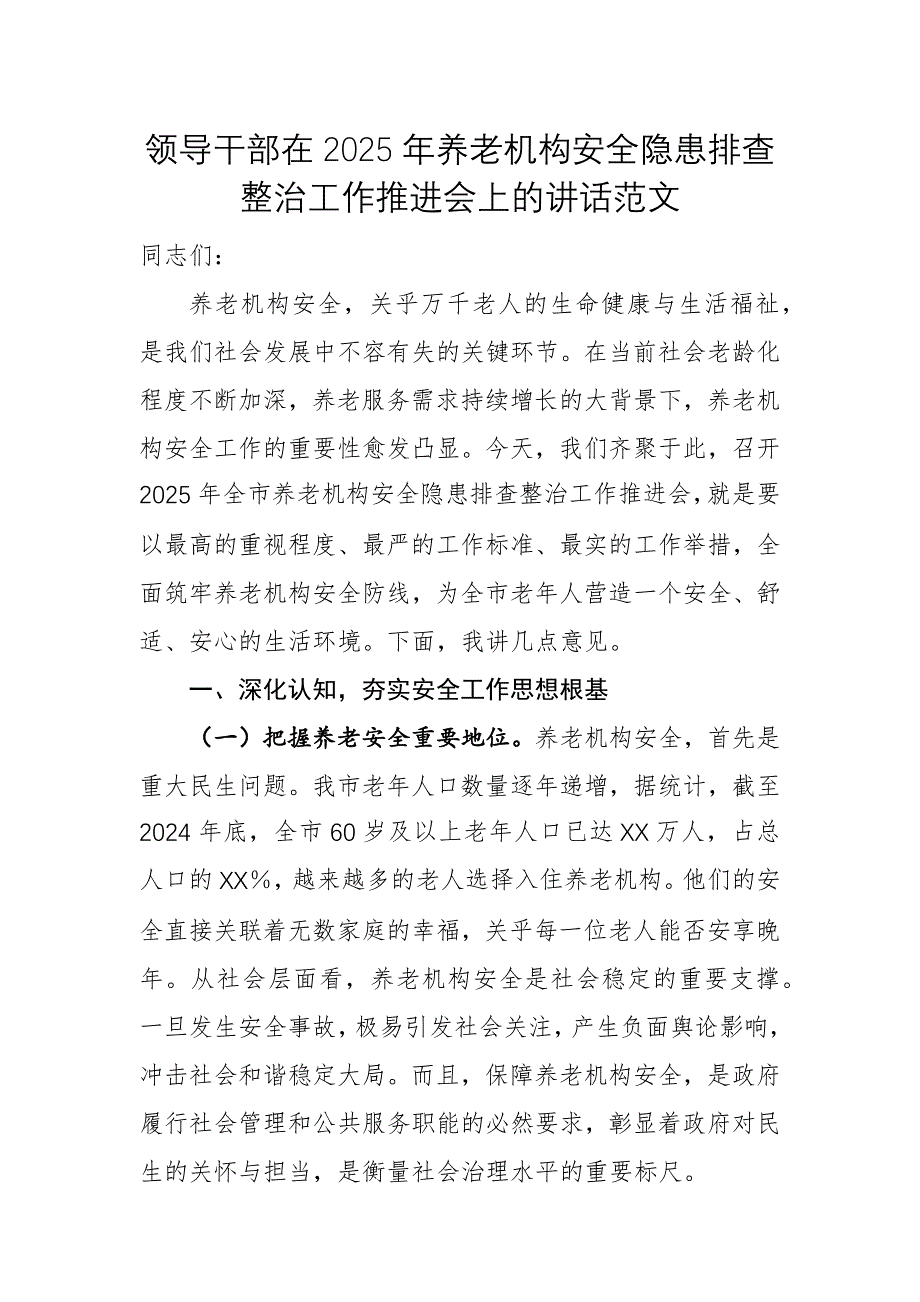 领导干部在 2025 年养老机构安全隐患排查
整治工作推进会上的讲话范文
同志们：
养老机构安全，关乎万千老人的生命健康与生活福祉，
是我们社会发展中不容有失的关键环节。在当前社会老龄化
程度不断加深，养老服务需求持续增长的大背景下，养老机
构安全工作的重要性愈发凸显。今天，我们齐聚于此，召开
2025 年全市养老机构安全隐患排查整治工作推进会，就是要
以最高的重视程度、最严的工作标准、最实的工作举措，全
面筑牢养老机构安全防线，为全市老年人营造一个安全、舒
适、安心的生活环境。下面，我讲几点意见。
一、深化认知，夯实安全工作思想根基
（一）把握养老安全重要地位。养老机构安全，首先是
重大民生问题。我市老年人口数量逐年递增，据统计，截至
2024 年底，全市 60 岁及以上老年人口已达 XX 万人，占总
人口的 XX%，越来越多的老人选择入住养老机构。他们的安
全直接关联着无数家庭的幸福，关乎每一位老人能否安享晚
年。从社会层面看，养老机构安全是社会稳定的重要支撑。
一旦发生安全事故，极易引发社会关注，产生负面舆论影响，
冲击社会和谐稳定大局。而且，保障养老机构安全，是政府
履行社会管理和公共服务职能的必然要求，彰显着政府对民
生的关怀与担当，是衡量社会治理水平的重要标尺。